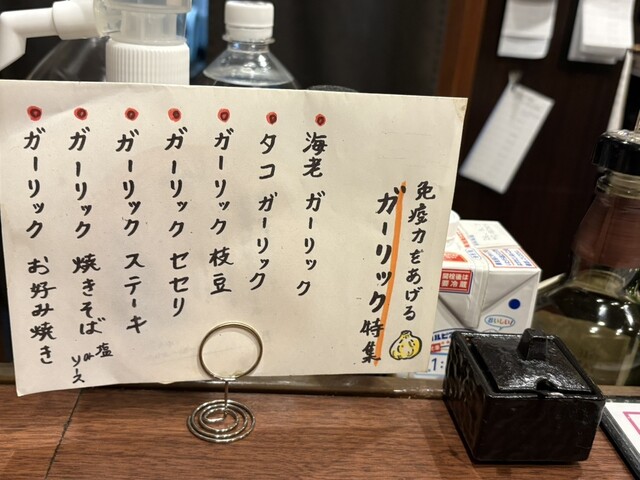 免疫力をあげる
ガーリック特集
海老 ガーリック
タコ ガーリック
ガーリック 枝豆
ガーリック セセリ
ガーリック ステーキ
ガーリック 焼きそば 塩 or ソース
ガーリック お好み焼き
開封後は
要冷蔵
おいしい